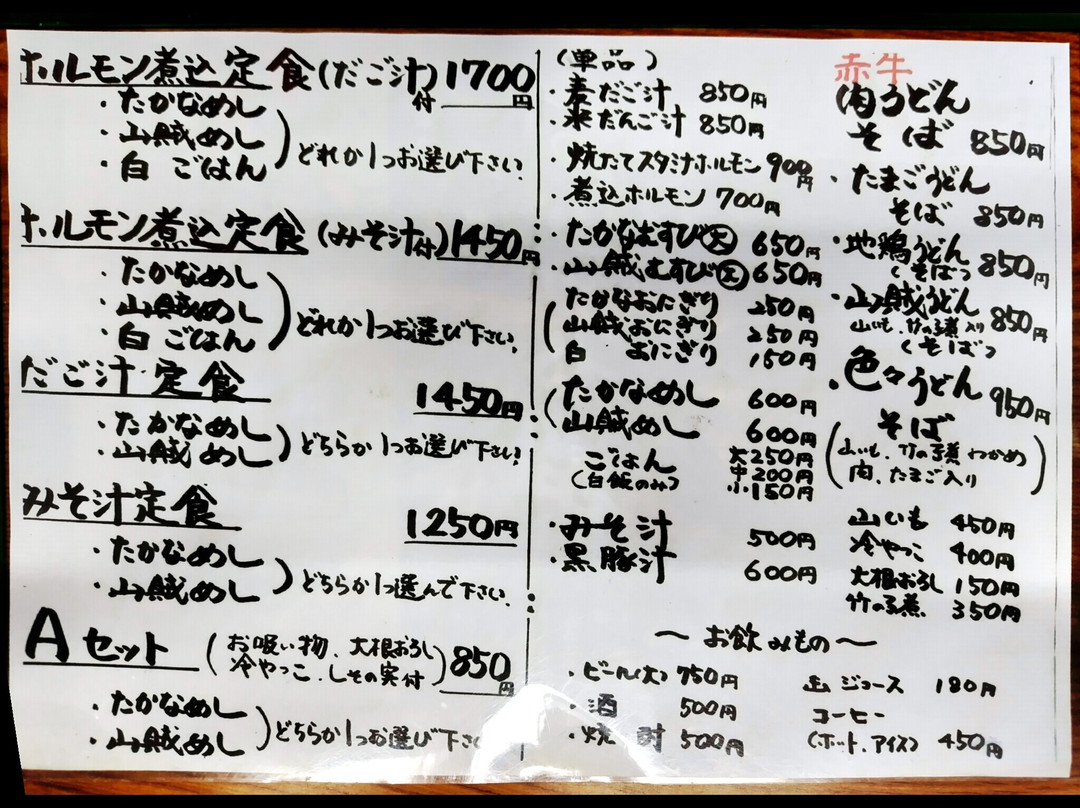 ホルモン煮込定食(だご汁)付 1700円
・たかなめし
・山賊めし
・白ごはん
どれか1つお選び下さい
ホルモン煮込定食(みそ汁付)1450円
・たかなめし
・山賊めし
・白ごはん
どれか1つお選び下さい。
だご汁定食 1450円
・たかなめし
・山賊めし
どちらか1つお選び下さい
みそ汁定食 1250円
・たかなめし
・山賊めし
どちらか1つ選んで下さい。
Aセット (お吸い物、大根おろし 850円
冷やっこ、しその実付)
・たかなめし
・山賊めし
どちらか1つお選び下さ
(単品)
・麦だご汁 850円
・米だんご汁 850円
・焼たてスタミナホルモン 900円
・煮込ホルモン 700円
・たかなむすび 650円
・山賊むすび 650円
たかなおにぎり 250円
山賊おにぎり 250円
白 おにぎり 150円
たかなめし 600円
山賊めし 600円
ごはん 大250円
(白飯のみ) 中200円
小150円
・みそ汁 500円
・黒豚汁 600円
赤牛
肉うどん
そば 850円
・たまごうどん
そば 850円
・地鶏うどん 850円
(そば)
・山賊うどん 850円
山いも、竹の子煮入り
(そば)
・色々うどん 950円
そば
(山いも、竹の子煮 わかめ
肉、たまご入り)
山いも 450円
冷やっこ 400円
大根おろし 150円
竹の子煮 350円
〜 お飲みもの 〜
・ビール(大) 750円
・酒 500円
・焼酎 500円
缶ジュース 180円
コーヒー
(ホット、アイス) 450円